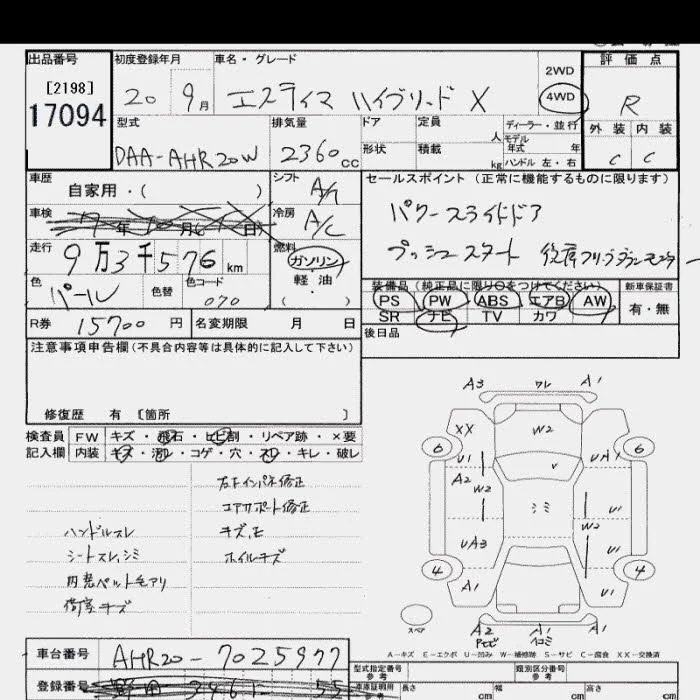 出品番号
[2198]
17094
初度登録年月
20 9月
車名・グレード
エスティマ ハイブリッド X
2WD
4WD
評価点
R
外装 内装
C C
型式
DAA-AHR20W
排気量
2360cc
ドア
形状
定員 人
積載 kg
ディーラー・並行
モデル年式 年
ハンドル 左・右
車歴
自家用・( )
シフト
A/T
冷房
A/C
燃料
ガソリン
軽・油
( )
車検
走行
9万3千576km
色
パール
色替
色コード
070
セールスポイント(正常に機能するものに限ります)
パワースライドドア
プッシュスタート 後席フリップダウンモニター
装備品(純正品に限り○をつけてください)
PS PW ABS エアB AW
SR ナビ TV カワ
新車保証書
有・無
後日品
R券 15700円
名変期限 月 日
注意事項申告欄(不具合内容等は具体的に記入して下さい)
修復歴 有 〔箇所 〕
検査員記入欄
FW キズ・飛石・ヒビ割・リペア跡・×要
内装 キズ・汚レ・コゲ・穴・スレ・キレ・破レ
左右インパネ修正
コアサポート修正
ハンドルスレ
シートスレ,シミ
内装ペット毛アリ
荷室キズ
ホイルキズ
A3 ワレ A1
XX W2
6 6
U1 V UA1
A2
W2 シミ U1
W2
UA3 U1
4 4
A1 U1
スペア
A2 A1 A1
ヘコミ
A-キズ E-エクボ U-凹み W-補修跡 S-サビ C-腐食 XX-交換済
車台番号
AHR20-7025977
登録番号
型式指定番号
類別区分番号
車庫証明用参考
長さ cm
幅 cm
高さ cm
参考